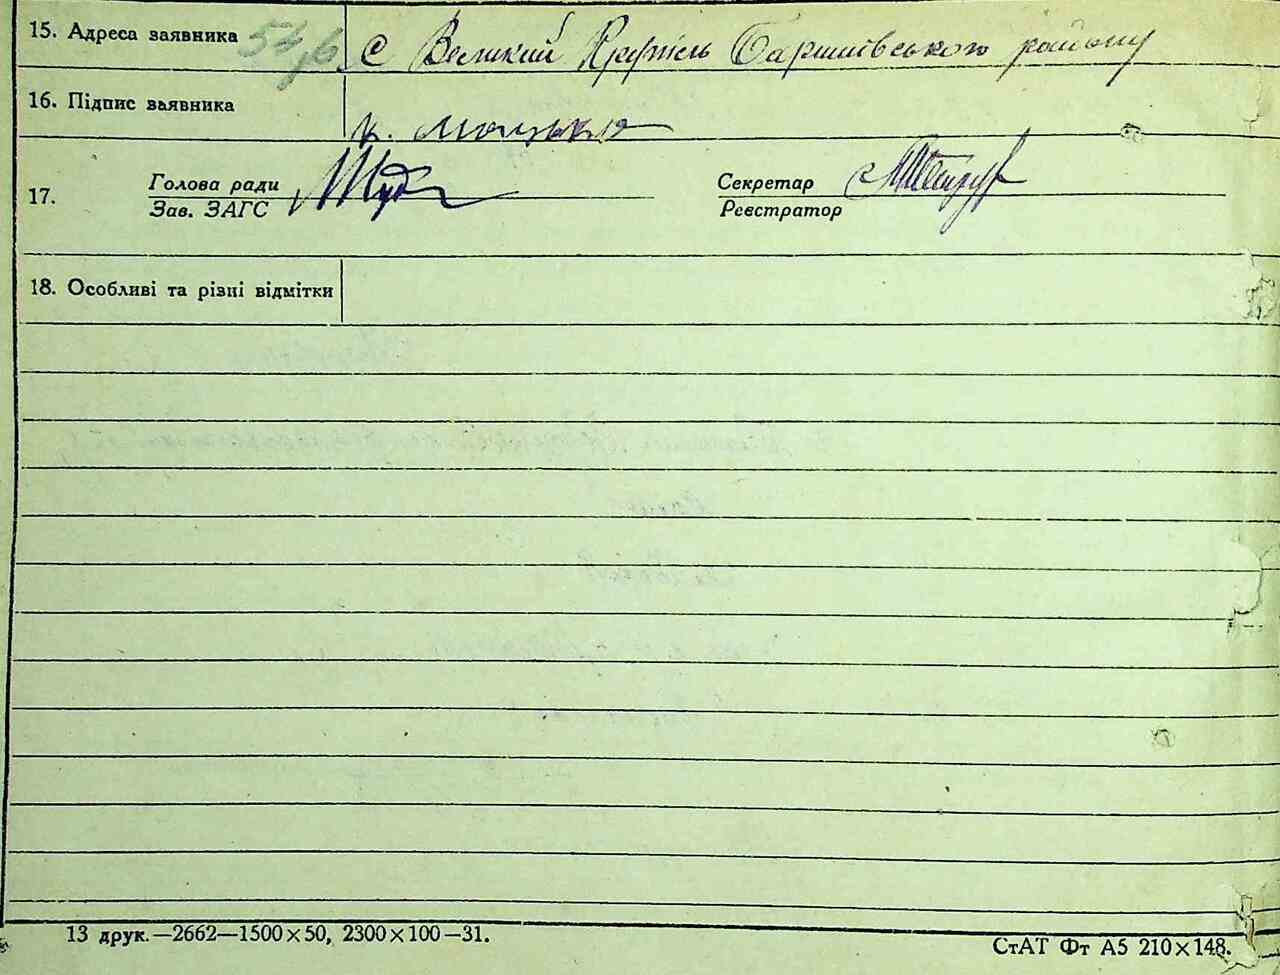 15. Адреса заявника с Великий Крупіль Баришівського району
16. Підпис заявника
17. Голова ради Секретар
Зав. ЗАГС Реєстратор
18. Особливі та різні відмітки
13 друк.—2662—1500×50, 2300×100—31. СтАТ Фт А5 210×148.